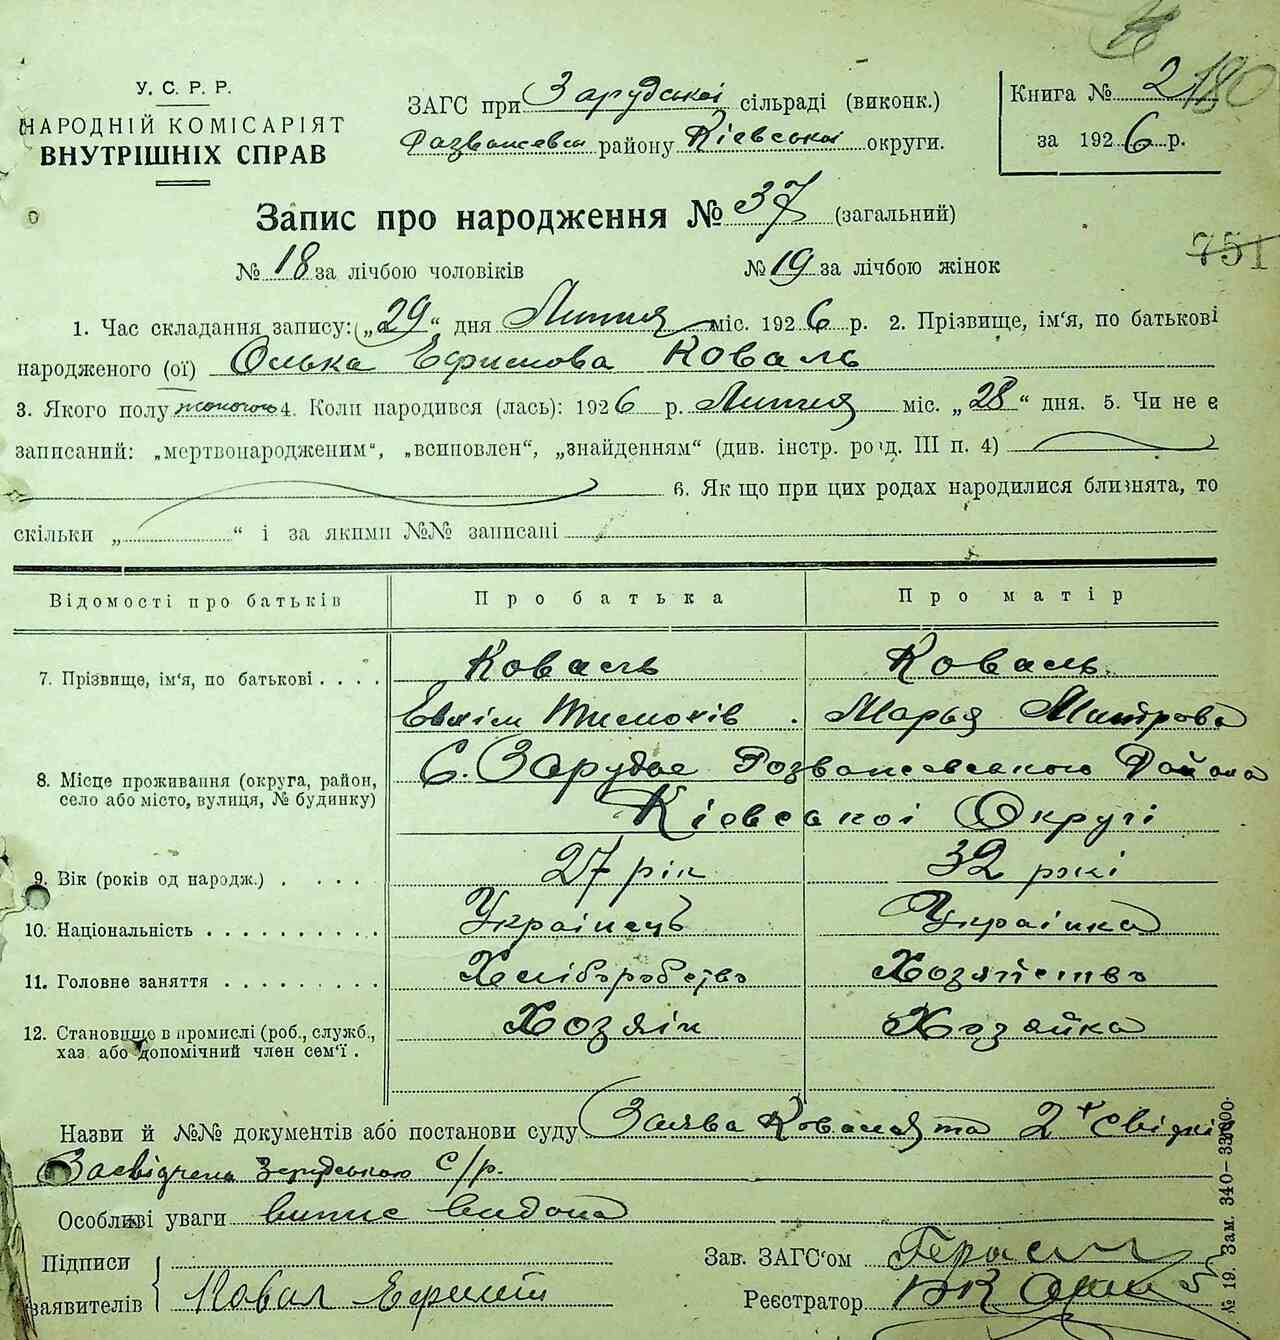 У. С. Р. Р.
НАРОДНІЙ КОМІСАРІЯТ
ВНУТРІШНІХ СПРАВ
ЗАГС при Зарудської сільраді (виконк.)
району Кіевської округи.
Книга № 2
за 1926 р.
Запис про народження № 37 (загальний)
№ 18 за лічбою чоловіків № 19 за лічбою жінок
751
1. Час складання запису: „29“ дня Липня міс. 1926 р. 2. Прізвище, ім'я, по батькові
народженого (ої) Олька Ефимова Коваль
3. Якого полу жоночою 4. Коли народився (лась): 1926 р. Липня міс. „28“ дня. 5. Чи не є
записаний: „мертвонародженим“, „всиновлен“, „знайденням“ (див. інстр. розд. III п. 4)
6. Як що при цих родах народилися близнята, то
скільки „ “ і за якими №№ записані
Відомості про батьків Про батька Про матір
7. Прізвище, ім'я, по батькові . . . . Коваль Коваль
Евхім Тимохів. Марья Митрова
8. Місце проживання (округа, район, село або місто, вулиця, № будинку) С. Зарудье Розважевського Района
Кіевської Округі
9. Вік (років од народж.) . . . . 27 рік 32 рокі
10. Національність . . . . . . . . . . Украінець Украінка
11. Головне заняття . . . . . . . . . Хліборобство Хозяйство
12. Становище в промислі (роб., служб., хаз або допомічний член сем'ї . Хозяін Хозяйка
Назви й №№ документів або постанови суду Заява Коваля та 2х свідків
Засвідчена Зарудською с/р.
Особливі уваги випис видана
Підписи
заявителів Ковал Ефим
Зав. ЗАГС'ом
Реєстратор
№ 19. Зам. 340—